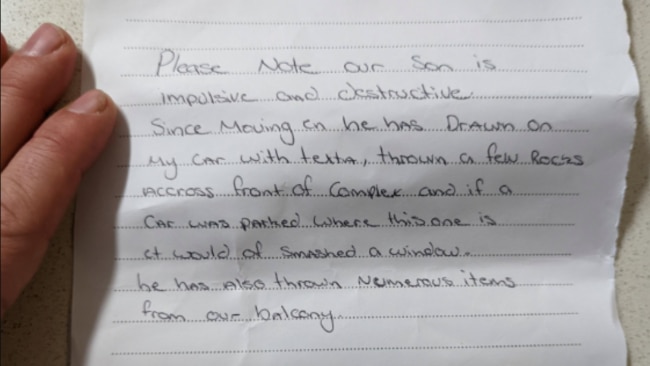 Please Note our Son is
impulsive and destructive.
Since Moving in he has DRAWN on
My CAR with texta, thrown a few Rocks
Accross front of Complex and if a
CAR was parked where this one is
it would of smashed a window.
he has Also thrown Numerous items
from our balcony.